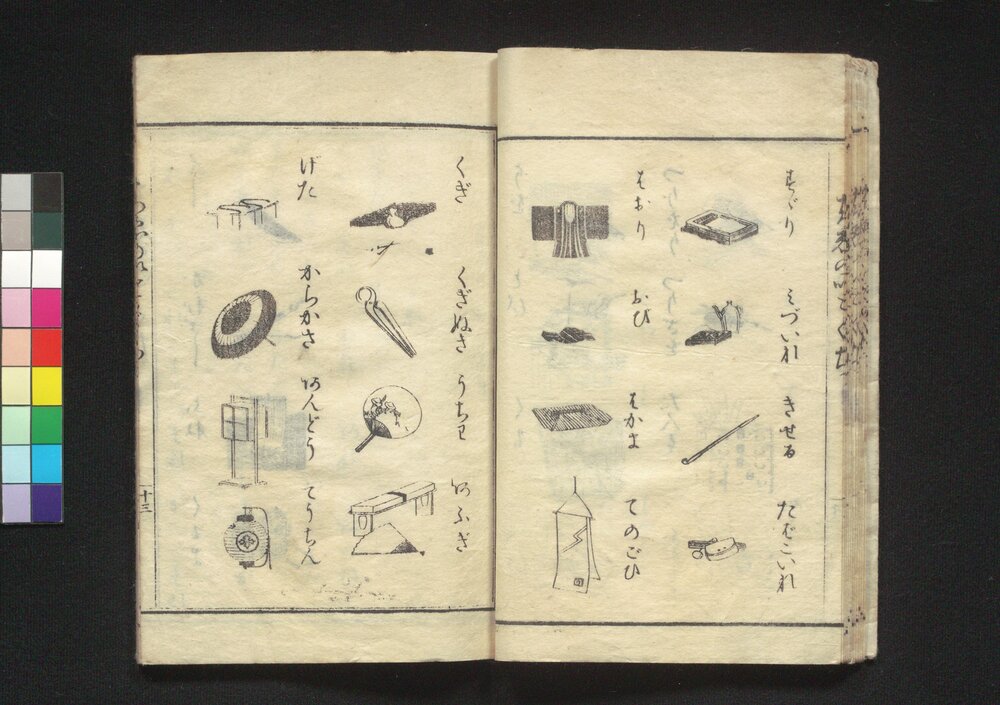 すゞり
みづいれ
きせる
たばこいれ
はおり
おび
はかま
てのごひ
くぎ
くぎぬき
うちわ
あふぎ
げた
からかさ
あんどう
てうちん
十三